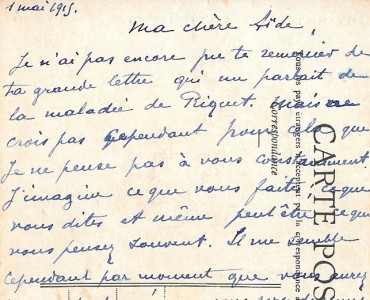 1 mai 1915.
Ma chère Aïde,
Je n'ai pas encore pu te remercier de
ta grande lettre qui me parlait de
la maladie de Riquet. Mais ne
crois pas cependant pour cela que
Je ne pense pas à vous constamment.
J'imagine ce que vous faites, ce que
vous dites et même peut être ce que
vous pensez souvent. Il me semble
cependant par moment que vous
CARTE POS
Correspondance
Tous les pays étrangers n'acceptent pas la correspondance